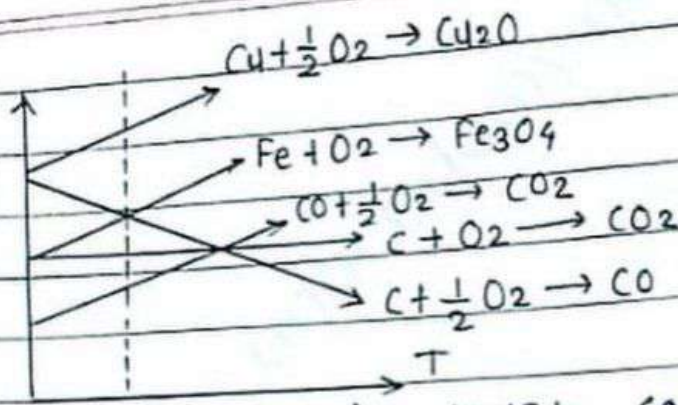 Cu+½O2 → Cu2O
Fe+O2 → Fe3O4
CO+½O2 → CO2
C+O2 → CO2
C+½O2 → CO
T